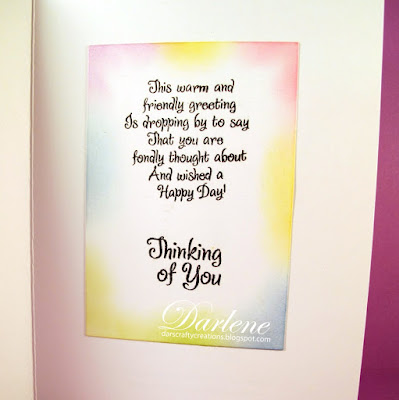 This warm and
friendly greeting
Is dropping by to say
That you are
fondly thought about
And wished a
Happy Day!
Thinking
of You
Darlene
dorscraftycreations.blogspot.com